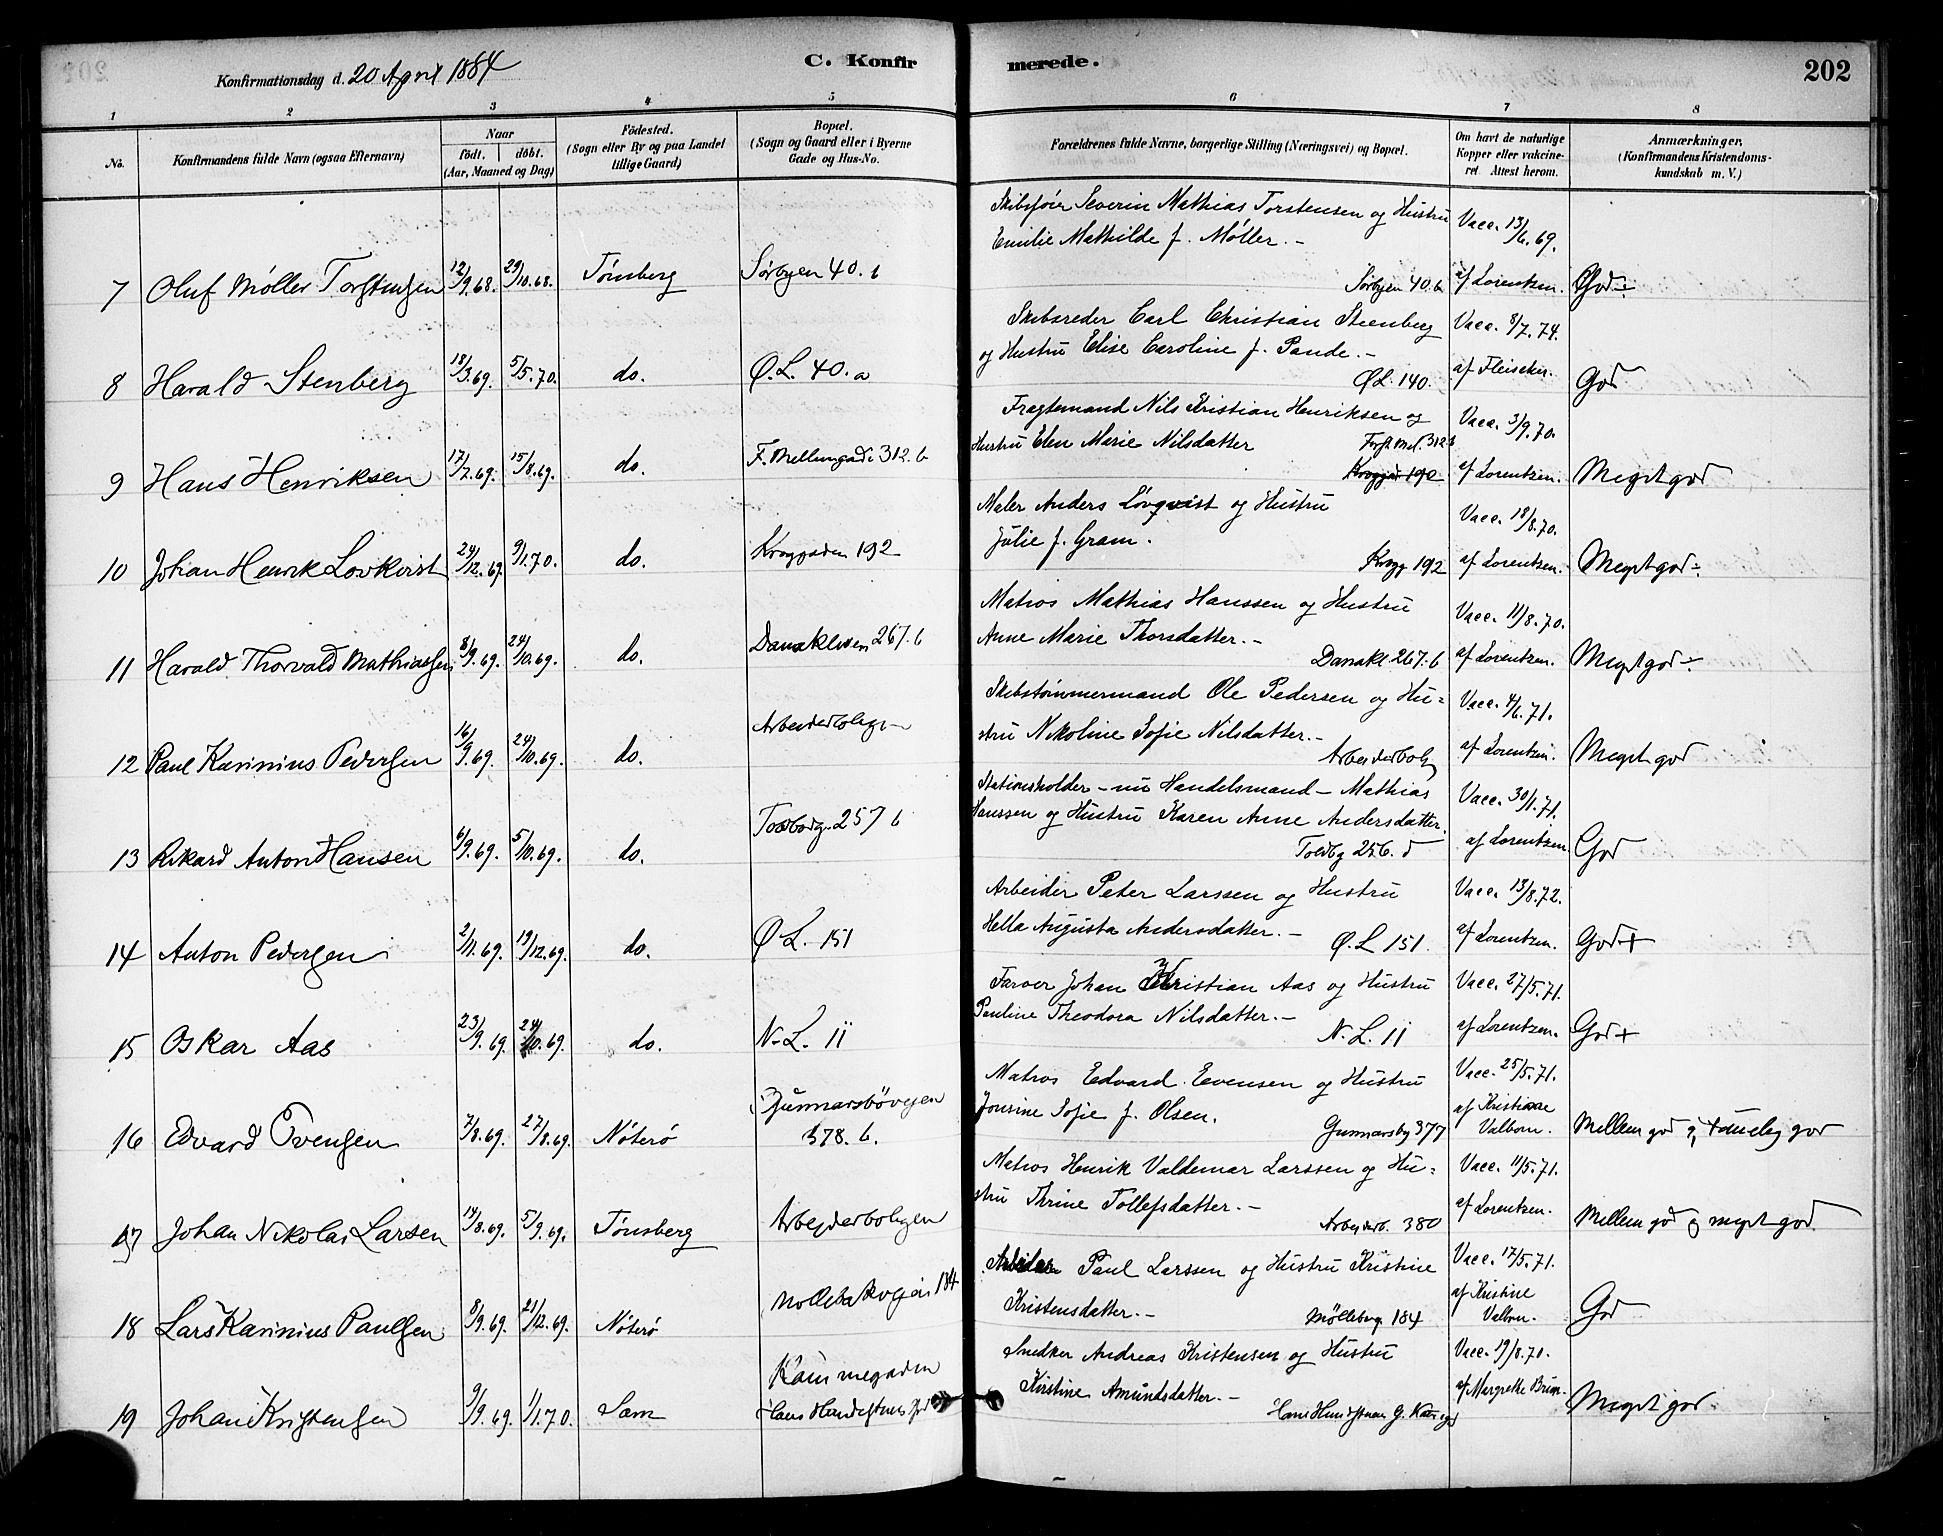 Konfirmationsdag d. 20 April 1884
C. Konfir
merede.
202
1 2 3 4 5 6 7 8
No.
Konfirmandens fulde Navn (ogsaa Efternavn)
Naar
födt. döbt.
(Aar, Maaned og Dag)
Födested.
(Sogn eller By og paa Landet
tillige Gaard)
Bopæl.
(Sogn og Gaard eller i Byerne
Gade og Hus-No.
Forældrenes fulde Navne, borgerlige Stilling (Næringsvei) og Bopæl.
Om havt de naturlige
Kopper eller vakcine-
ret. Attest herom.
Anmærkninger.
(Konfirmandens Kristendoms-
kundskab m. V.)
Skibsfører Severin Mathias Torstensen og Hustru Vacc. 13/6.69.
Emilie Mathilde f. Møller. -
7 Oluf Møller Torstensen 12/9.68. 29/10.68. Tønsberg Sørbyen 40.b Sørbyen 40.b af Lorentzen. God÷
Skibsreder Carl Christian Steenberg Vacc. 8/7.74.
og Hustru Elise Caroline f. Paude. -
8 Harald Stenberg 18/3.69. 5/5.70. do. Ø.L. 40.a ØL. 140. af Fleischer. God
Fragtemand Nils Kristian Henriksen og Vacc. 3/9.70.
Hustru Elen Marie Nilsdatter
9 Hans Henriksen 17/7.69. 15/8.69. do. F. Mellemgade 312.b Kroggad 192 af Lorentzen. Meget god
Maler Anders Lövqvist og Hustru Vacc. 18/8.70.
Julie f. Gram.
10 Johan Henrik Lovkvist 24/12.69. 9/1.70. do. Kroggaden 192 Krogg 192 af Lorentzen. Meget god÷
Matros Mathias Hanssen og Hustru Vacc. 11/8.70.
Anne Marie Thorsdatter. -
11 Harald Thorvald Mathiassen 8/9.69. 24/10.69. do. Danskleven 267.b Danskl. 267.b af Lorentzen. Meget god÷
Skibstømmermand Ole Pedersen og Hu= Vacc. 4/6.71.
stru Nikoline Sofie Nilsdatter. -
12 Paul Karinius Pedersen 16/9.69. 24/10.69. do. Arbejderbolign Arbejderbolig af Lorentzen. Meget god
Stationsholder - nu Handelsmand - Mathias Vacc. 30/1.71.
Hanssen og Hustru Karen Anne Andersdatter.
13 Rikard Anton Hansen 6/9.69. 5/10.69. do. Toldbodgn 257 b Toldbg 256. d af Lorentzen God
Arbeider Peter Larssen og Hustru Vacc. 13/8.72.
Hella Augusta Andersdatter. -
14 Anton Pedersen 2/11.69. 19/12.69. do. Ø L. 151 Ø.L 151. af Lorentzen. God+
Farver Johan Kristian Aas og Hustru Vacc. 27/5.71.
Pauline Theodora Nilsdatter. -
15 Oskar Aas 23/9.69. 24/10.69. do. N.L. 11 N.L. 11 af Lorentzen. God+
Matros Edvard Evensen og Hustru Vacc. 25/5.71.
Jonsine Sofie f. Olsen.
16 Edvard Evensen 7/8.69. 27/8.69. Nöterö Gunnarsbövejen 378.b. Gunnarsby 377 af Kristiane Valborn. Mellem god og temelig god
Matros Henrik Valdemar Larssen og Hu= Vacc. 11/5.71.
stru Thrine Tollefsdatter. -
17 Johan Nikolai Larsen 14/8.69. 5/9.69. Tønsberg Arbejderboligen Arbejderb. 380 af Lorentzen. Mellem god og meget god
Arbeider Paul Larssen og Hustru Kristine Vacc. 17/5.71.
Kristensdatter. -
18 Lars Karinius Paulsen 8/9.69. 21/12.69. Nöterö Möllebakvejen 184 Mölleberg 184 af Kristine Valborn. God
Snedker Andreas Kristensen og Hustru Vacc. 19/8.70.
Kirstine Amundsdatter. -
19 Johan Kristensen 9/9.69. 1/1.70. Sem Kammegaden af Margrethe Brun. Meget god